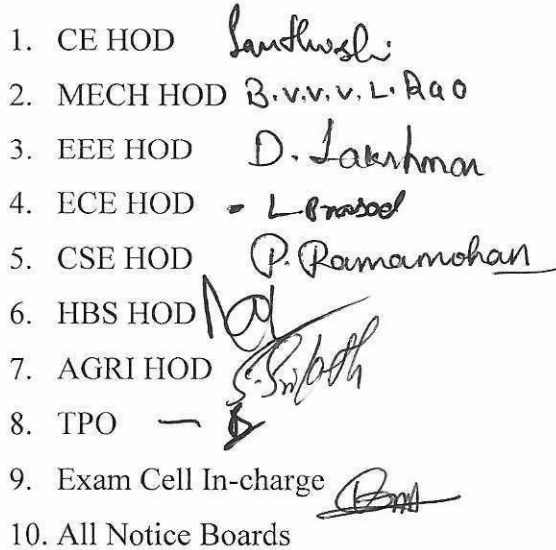 1. CE HOD Santhoshi
2. MECH HOD B.V.V.V.L.Rao
3. EEE HOD D. Lakshman
4. ECE HOD - L Prasad
5. CSE HOD P. Ramamohan
6. HBS HOD
7. AGRI HOD
8. TPO —
9. Exam Cell In-charge
10. All Notice Boards